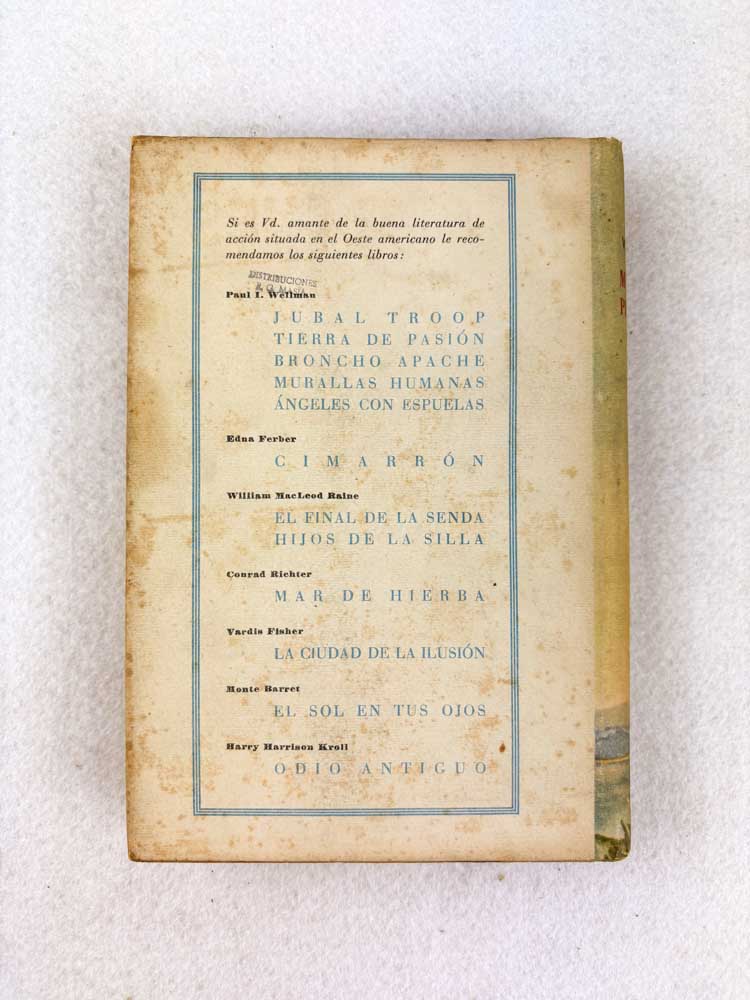 Si es Vd. amante de la buena literatura de
acción situada en el Oeste americano le reco-
mendamos los siguientes libros:
DISTRIBUCIONES
Paul I. Wellman
JUBAL TROOP
TIERRA DE PASIÓN
BRONCHO APACHE
MURALLAS HUMANAS
ÁNGELES CON ESPUELAS
Edna Ferber
CIMARRÓN
William MacLeod Raine
EL FINAL DE LA SENDA
HIJOS DE LA SILLA
Conrad Richter
MAR DE HIERBA
Vardis Fisher
LA CIUDAD DE LA ILUSIÓN
Monte Barret
EL SOL EN TUS OJOS
Harry Harrison Kroll
ODIO ANTIGUO